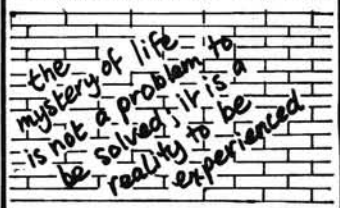 the
mystery of life
is not a problem to
be solved; it is a
reality to be
experienced